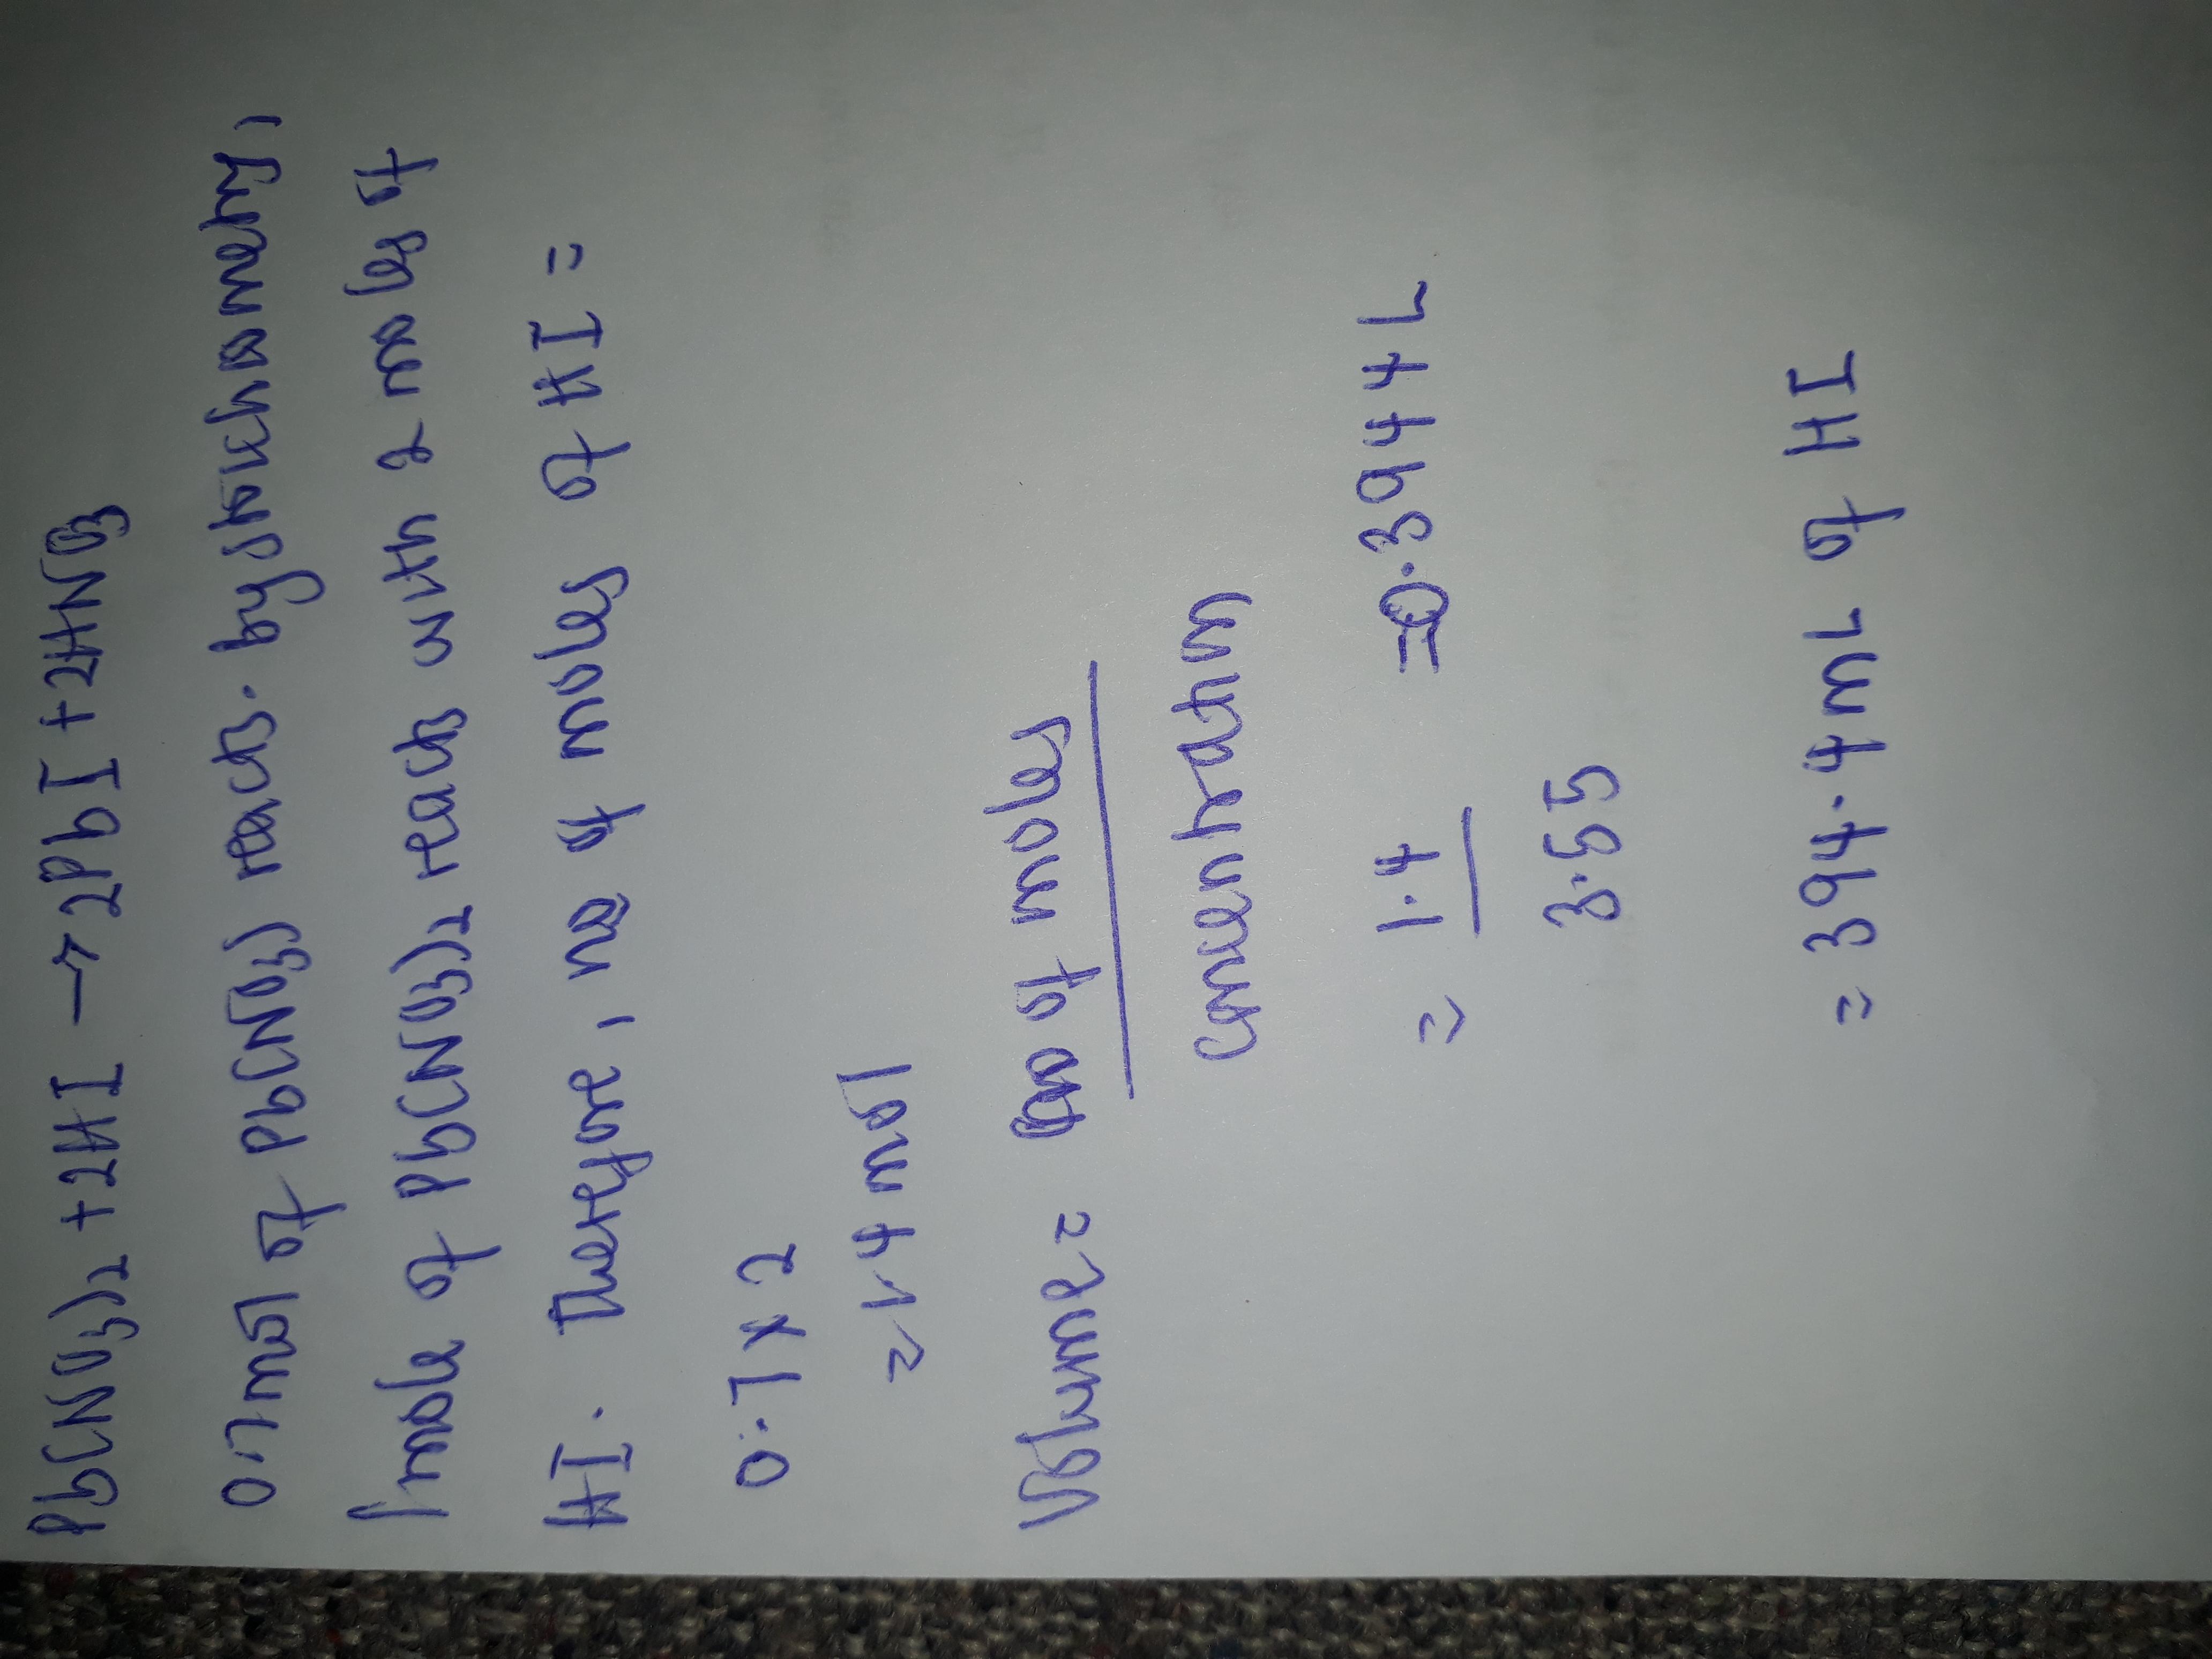 Pb(NO3)2 + 2HI → 2PbI + 2HNO3
0.7 mol of Pb(NO3) reacts. by stoichiometry,
1 mole of Pb(NO3)2 reacts with 2 moles of
HI. Therefore, no of moles of HI =
0.7 x 2
= 1.4 mol
Volume = no of moles
concentration
= 1.4 = 0.3944L
3.55
= 394.4mL of HI